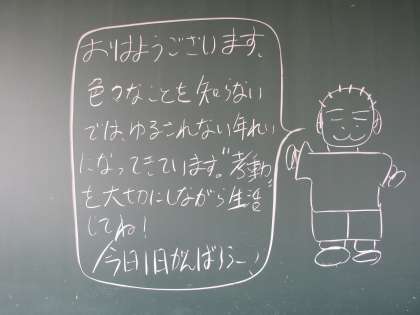 おはようございます、
色々なことを知らない
では、ゆるされない年れい
になってきています。"考動"
を大切にしながら生活
してね!
今日1日がんばろう!